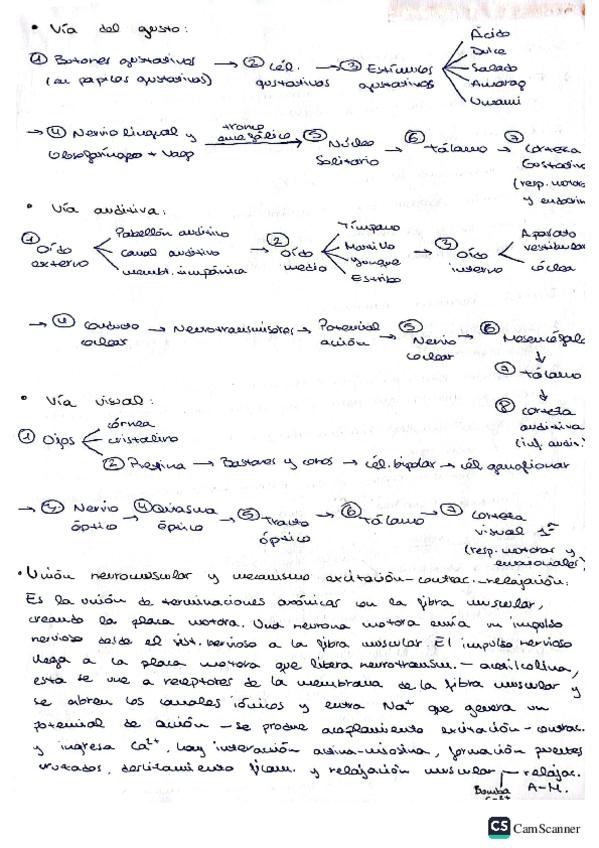 • Vía del gusto:
① Botones gustativos (en papilas gustativas) → ② cél. gustativas → ③ Estímulos gustativos
Ácido
Dulce
Salado
Amargo
Umami
→ ④ Nervio lingual y Glosofaríngeo + Vago
tronco encefálico
→ ⑤ Núcleo Solitario → ⑥ Tálamo → ⑦ corteza Gustativa (resp. motora y endocrin
• Vía auditiva:
① Oído externo
Pabellón auditivo
canal auditivo
membr. timpánica
→ ② Oído medio
Tímpano
Martillo
Yunque
Estribo
→ ③ Oído interno
Aparato vestibular
cóclea
→ ④ Conducto coclear → Neurotransmisores → Potencial acción → ⑤ Nervio coclear → ⑥ Mesencéfalo
⑦ Tálamo
⑧ corteza auditiva
• Vía visual:
① Ojos
córnea
cristalino
② Retina → Bastones y conos → cél. bipolar → cél. ganglionar
→ ③ Nervio óptico → ④ Quiasma óptico → ⑤ Tracto óptico → ⑥ Tálamo → ⑦ Corteza visual 1ª (resp. motoras y emocionales)
• Unión neuromuscular y mecanismo excitación-contrac.-relajación:
Es la unión de terminaciones axónicas con la fibra muscular,
creando la placa motora. Una neurona motora envía un impulso
nervioso desde el sist. nervioso a la fibra muscular. El impulso nervioso
llega a la placa motora que libera neurotransm. – acetilcolina,
esta se une a receptores de la membrana de la fibra muscular y
se abren los canales iónicos y entra Na⁺ que genera un
potencial de acción – se produce acoplamiento excitación-contrac.
y ingresa Ca²⁺, hay interacción actina-miosina, formación puentes
cruzados, deslizamiento filam. y relajación muscular relajac.
Bomba Ca²⁺ A-M.
CS CamScanner